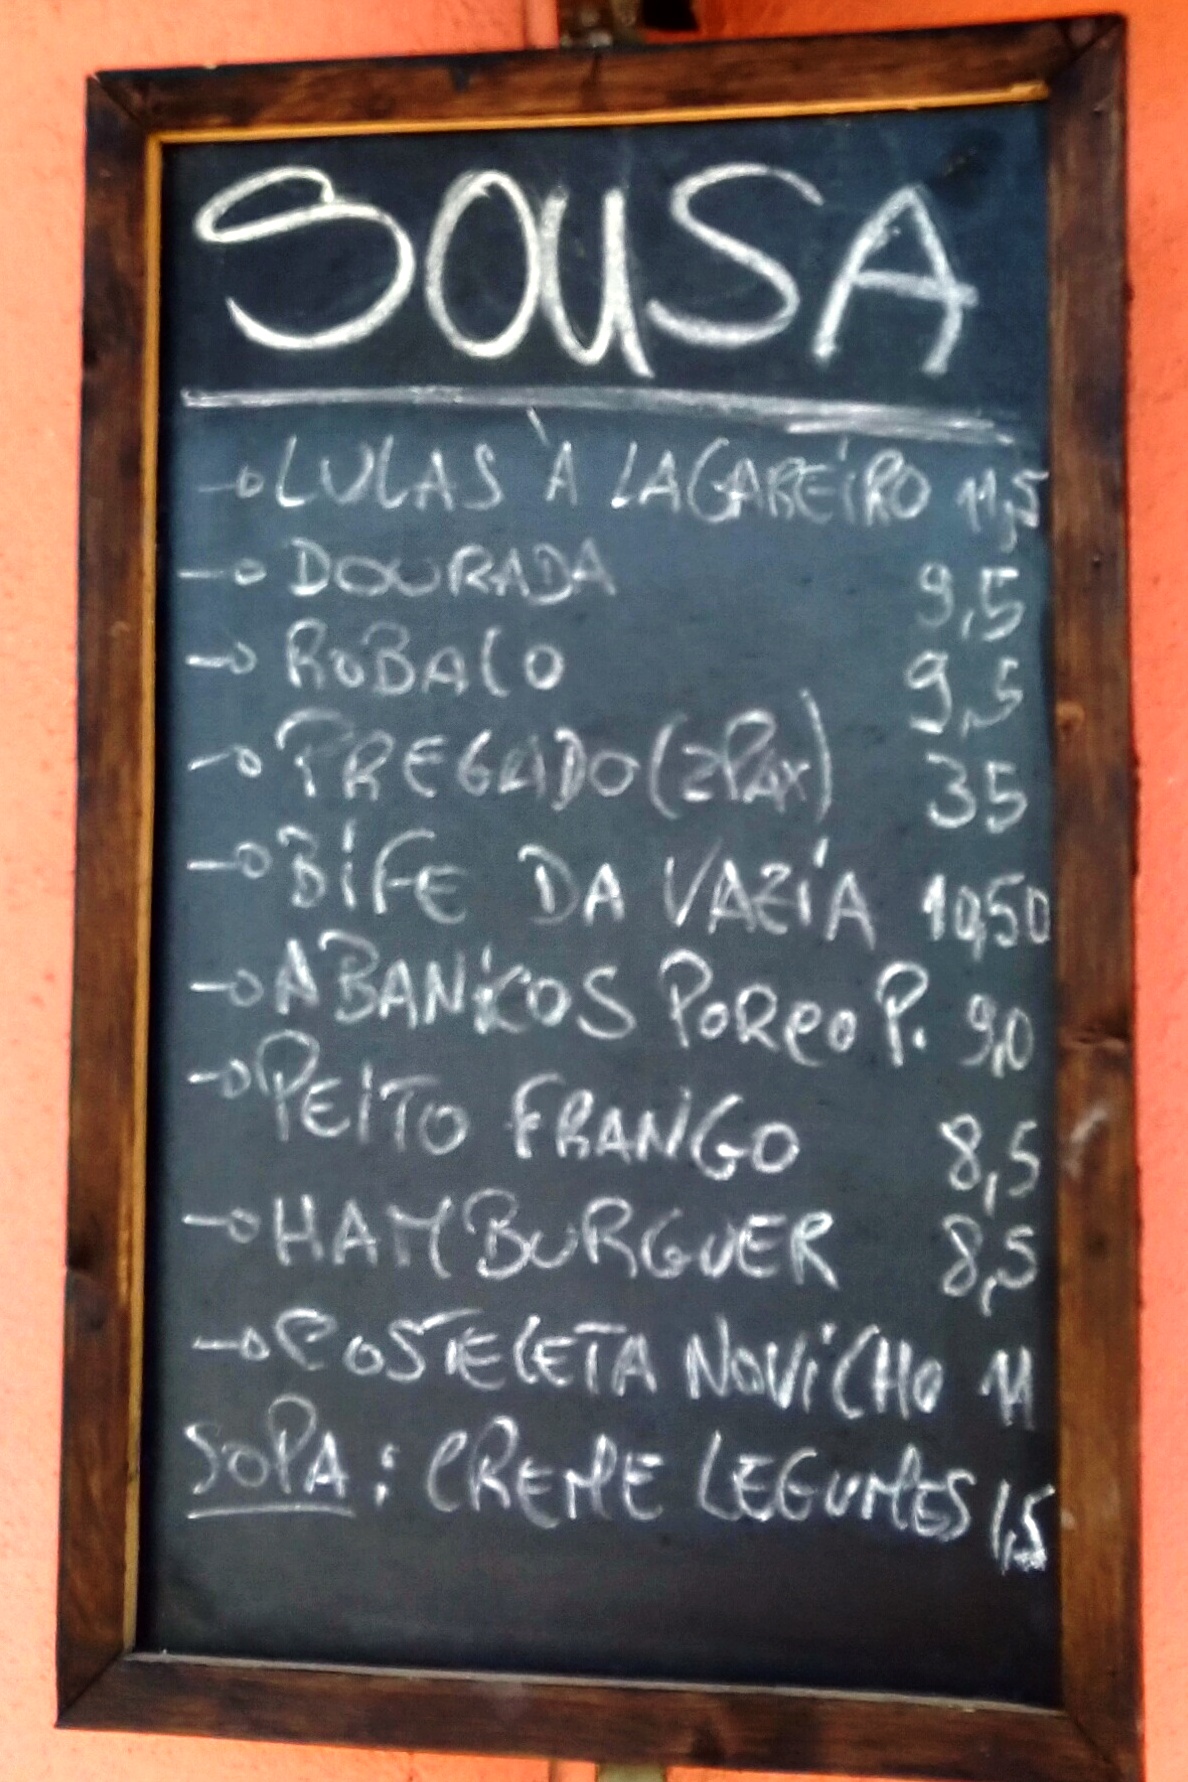 SOUSA
LULAS À LAGAREIRO 11,5
DOURADA 9,5
ROBALO 9,5
PREGADO (2PAX) 35
BIFE DA VAZIA 10,50
ABANICOS PORCO P. 9,0
PEITO FRANGO 8,5
HAMBURGUER 8,5
COSTELETA NOVILHO 11
SOPA: CREME LEGUMES 1,5